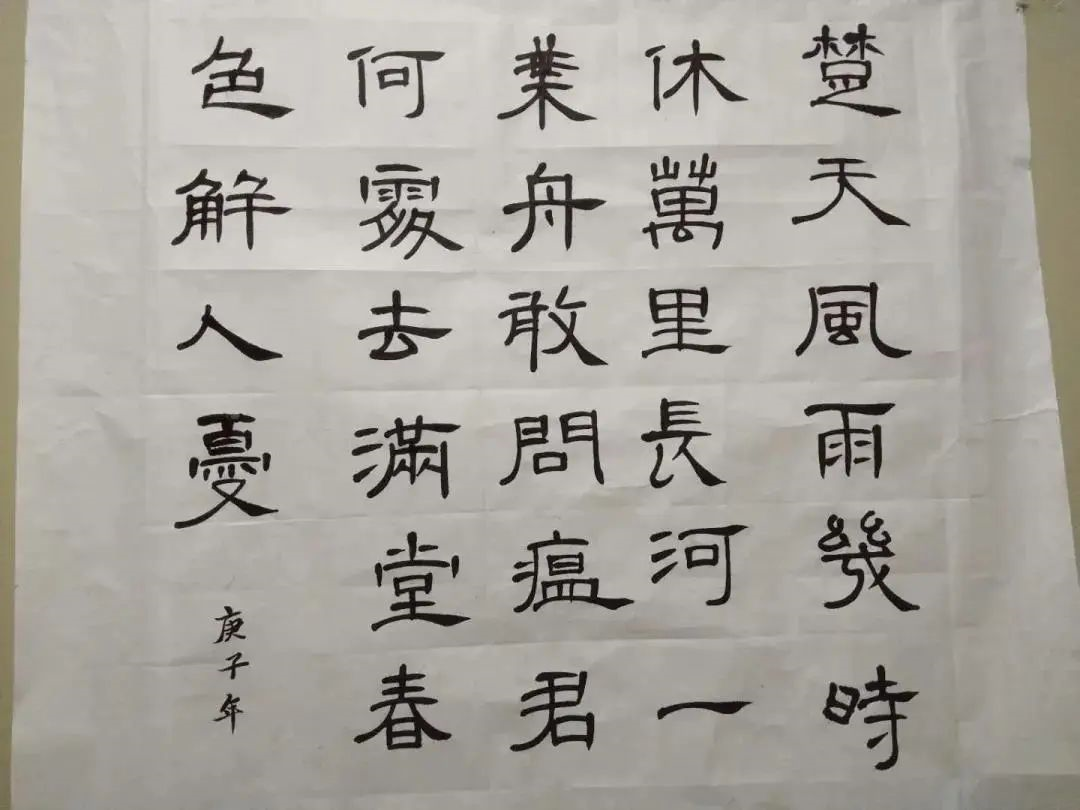 楚天風雨幾時
休萬里長河一
葉舟敢問瘟君
何處去滿堂春
色解人憂
庚子年